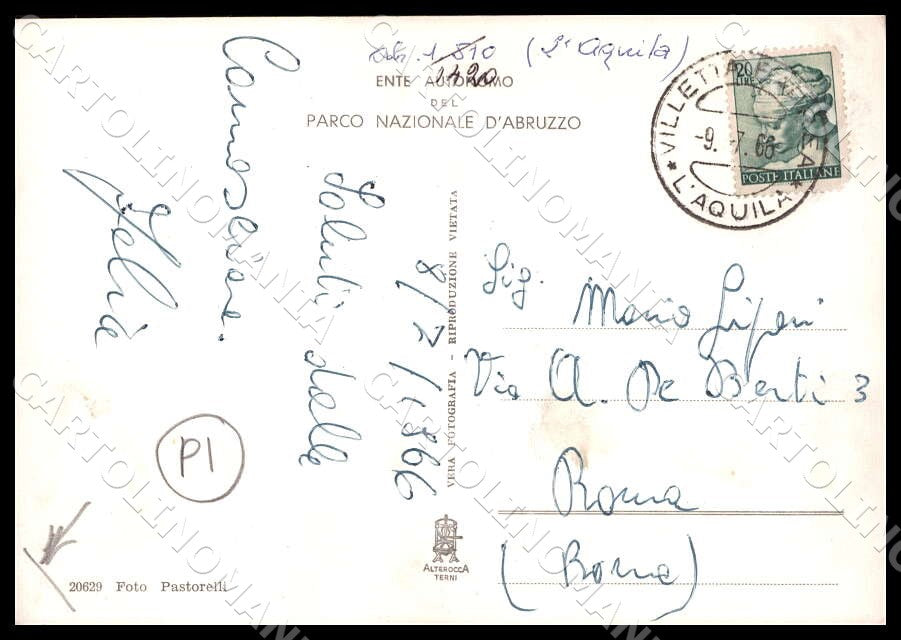 1490 (L'Aquila)
ENTE AUTONOMO
DEL
PARCO NAZIONALE D'ABRUZZO
VILLETTA BARREA
* L'AQUILA *
-9.7.66
20 LIRE
POSTE ITALIANE
8/7/1966
Saluti dalle
Camosciare.
VERA FOTOGRAFIA - RIPRODUZIONE VIETATA
Sig. Mario
Via A. De Berti 3
Roma
(Roma)
P1
ALTEROCCA
TERNI
20629 Foto Pastorelli
CARTOLINOMANIA